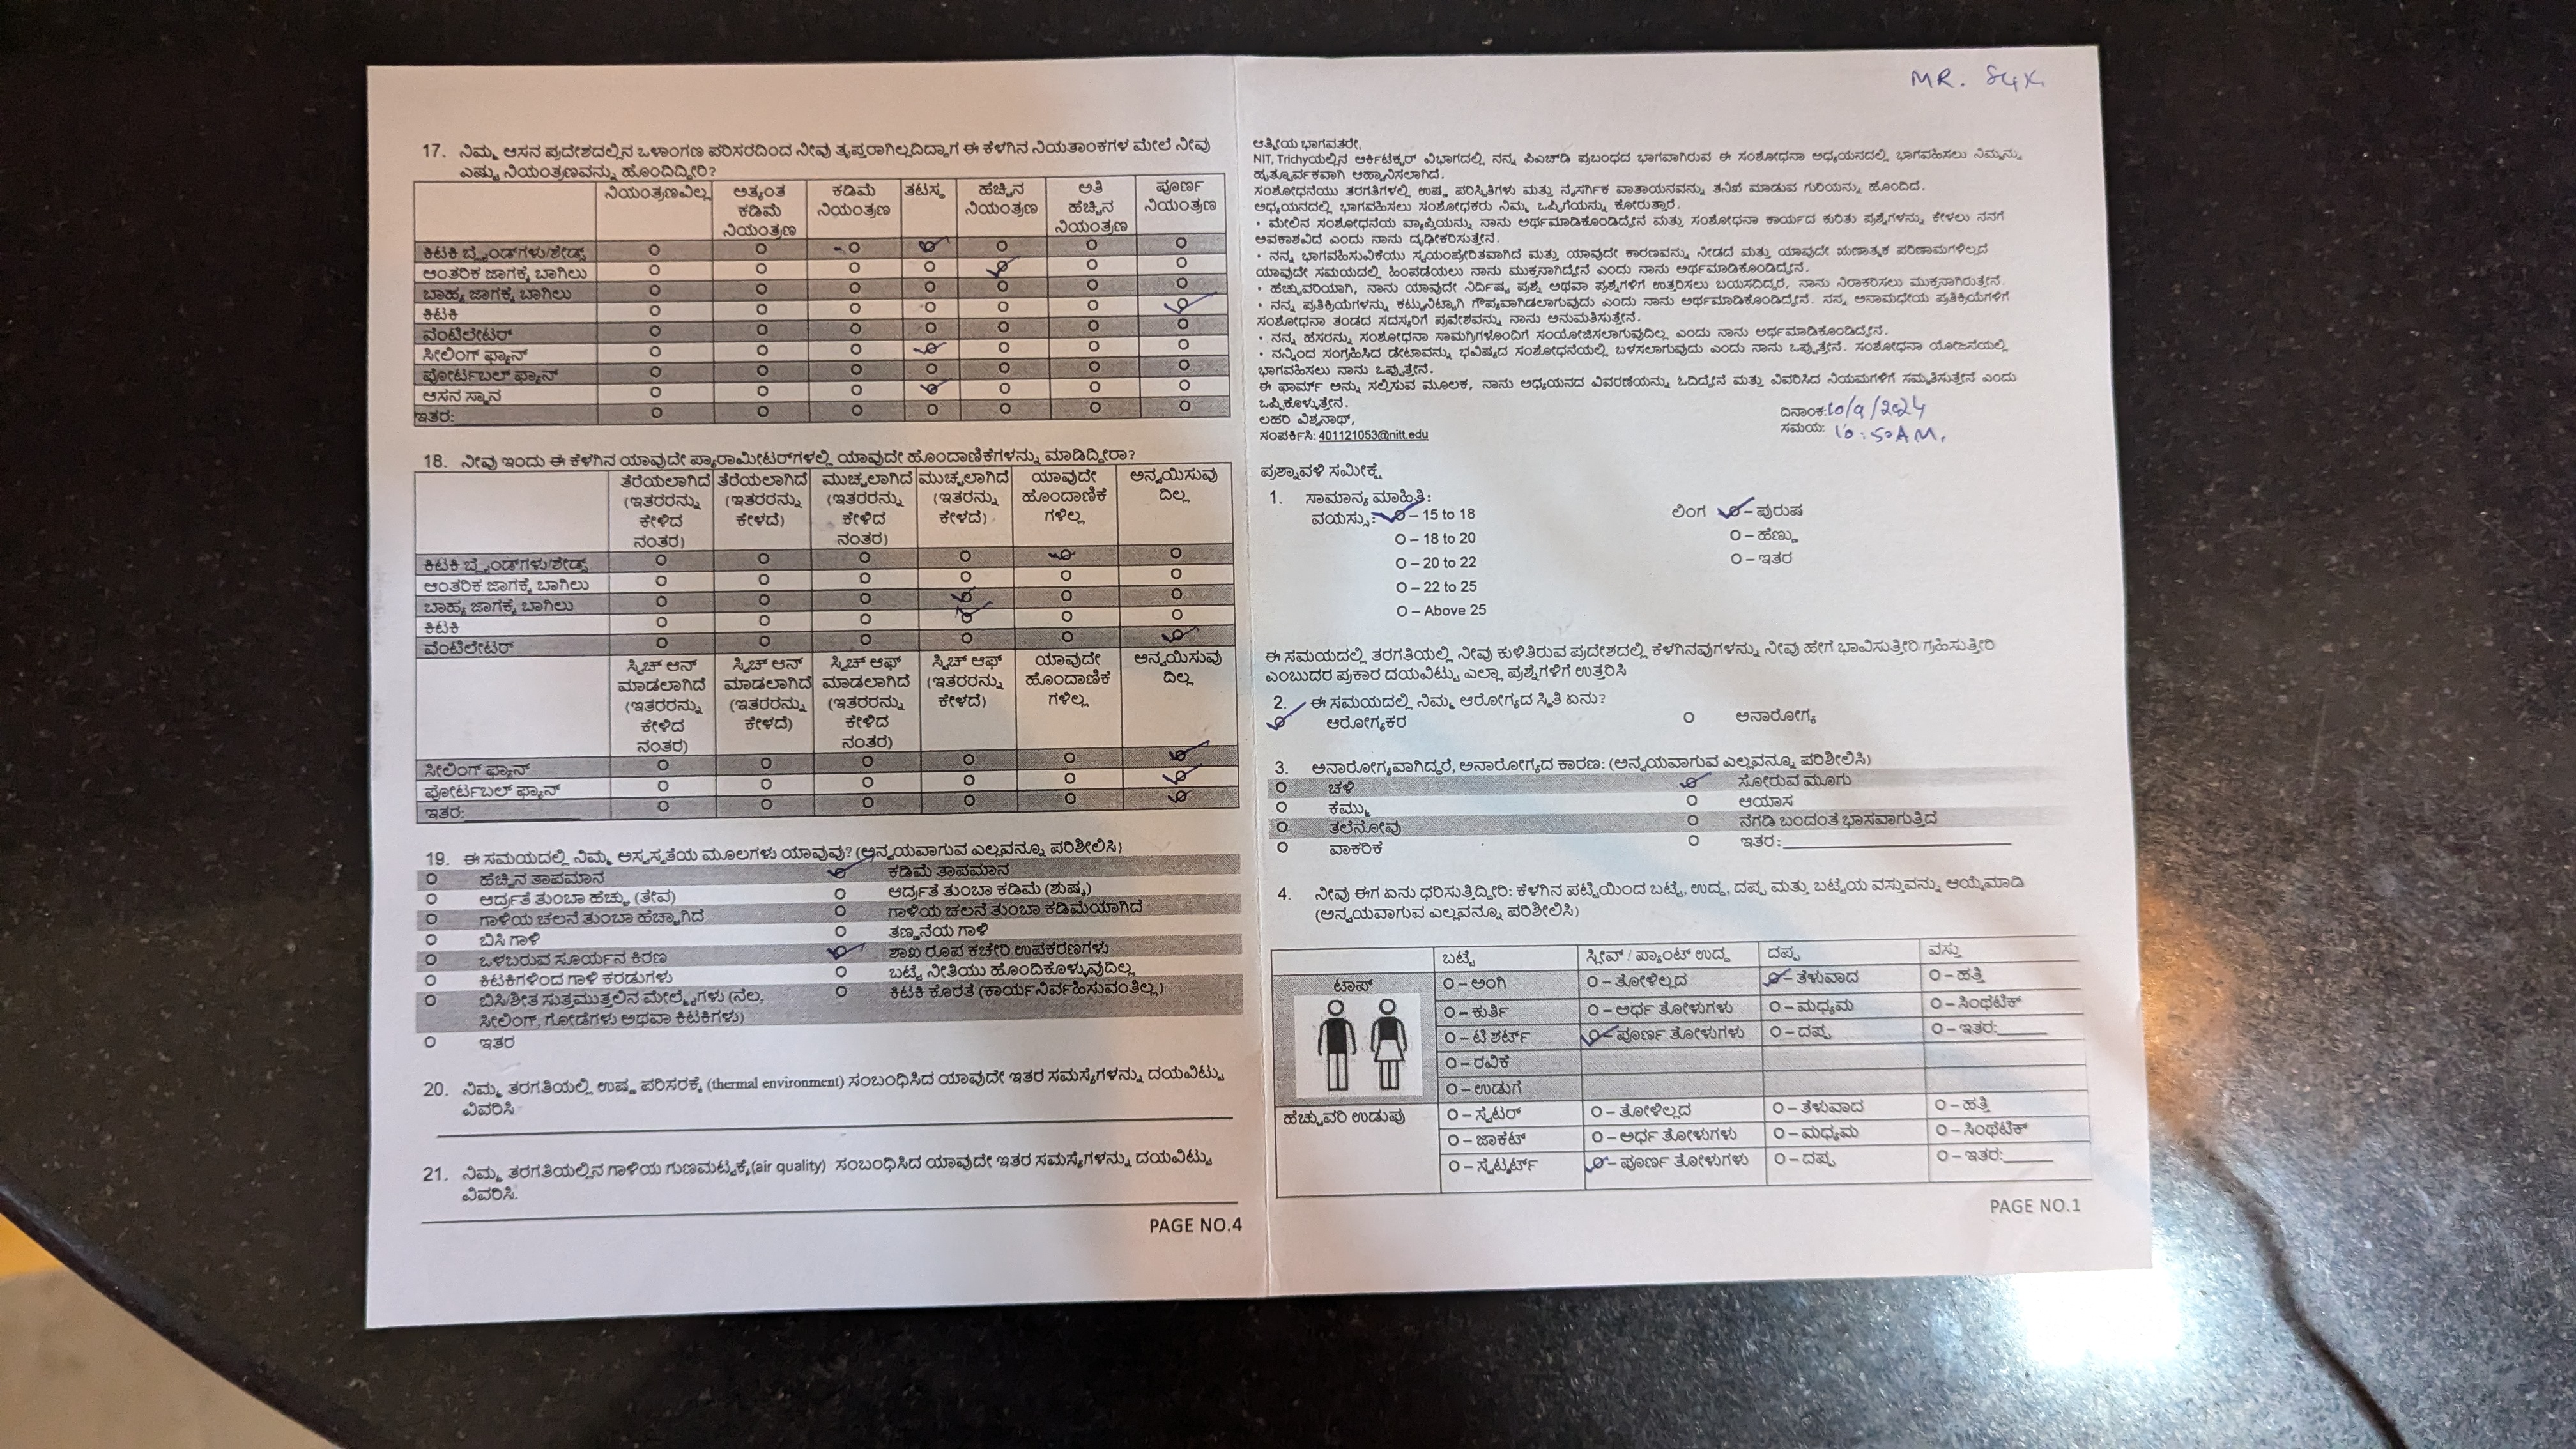 17. ನಿಮ್ಮ ಆಸನ ಪ್ರದೇಶದಲ್ಲಿನ ಒಳಾಂಗಣ ಪರಿಸರದಿಂದ ನೀವು ತೃಪ್ತರಾಗಿಲ್ಲದಿದ್ದಾಗ ಈ ಕೆಳಗಿನ ನಿಯತಾಂಕಗಳ ಮೇಲೆ ನೀವು
ಎಷ್ಟು ನಿಯಂತ್ರಣವನ್ನು ಹೊಂದಿದ್ದೀರಿ?
ನಿಯಂತ್ರಣವಿಲ್ಲ ಅತ್ಯಂತ ಕಡಿಮೆ ನಿಯಂತ್ರಣ ಕಡಿಮೆ ನಿಯಂತ್ರಣ ತಟಸ್ಥ ಹೆಚ್ಚಿನ ನಿಯಂತ್ರಣ ಅತಿ ಹೆಚ್ಚಿನ ನಿಯಂತ್ರಣ ಪೂರ್ಣ ನಿಯಂತ್ರಣ
ಕಿಟಕಿ ಬ್ಲೈಂಡ್‌ಗಳು/ಶೇಡ್ಸ್
ಆಂತರಿಕ ಜಾಗಕ್ಕೆ ಬಾಗಿಲು
ಬಾಹ್ಯ ಜಾಗಕ್ಕೆ ಬಾಗಿಲು
ಕಿಟಕಿ
ವೆಂಟಿಲೇಟರ್
ಸೀಲಿಂಗ್ ಫ್ಯಾನ್
ಪೋರ್ಟಬಲ್ ಫ್ಯಾನ್
ಆಸನ ಸ್ಥಾನ
ಇತರ:
18. ನೀವು ಇಂದು ಈ ಕೆಳಗಿನ ಯಾವುದೇ ಪ್ಯಾರಾಮೀಟರ್‌ಗಳಲ್ಲಿ ಯಾವುದೇ ಹೊಂದಾಣಿಕೆಗಳನ್ನು ಮಾಡಿದ್ದೀರಾ?
ತೆರೆಯಲಾಗಿದೆ (ಇತರರನ್ನು ಕೇಳಿದ ನಂತರ) ತೆರೆಯಲಾಗಿದೆ (ಇತರರನ್ನು ಕೇಳದೆ) ಮುಚ್ಚಲಾಗಿದೆ (ಇತರರನ್ನು ಕೇಳಿದ ನಂತರ) ಮುಚ್ಚಲಾಗಿದೆ (ಇತರರನ್ನು ಕೇಳದೆ) ಯಾವುದೇ ಹೊಂದಾಣಿಕೆ ಗಳಿಲ್ಲ ಅನ್ವಯಿಸುವು ದಿಲ್ಲ
ಕಿಟಕಿ ಬ್ಲೈಂಡ್‌ಗಳು/ಶೇಡ್ಸ್
ಆಂತರಿಕ ಜಾಗಕ್ಕೆ ಬಾಗಿಲು
ಬಾಹ್ಯ ಜಾಗಕ್ಕೆ ಬಾಗಿಲು
ಕಿಟಕಿ
ವೆಂಟಿಲೇಟರ್
ಸ್ವಿಚ್ ಆನ್ ಮಾಡಲಾಗಿದೆ (ಇತರರನ್ನು ಕೇಳಿದ ನಂತರ) ಸ್ವಿಚ್ ಆನ್ ಮಾಡಲಾಗಿದೆ (ಇತರರನ್ನು ಕೇಳದೆ) ಸ್ವಿಚ್ ಆಫ್ ಮಾಡಲಾಗಿದೆ (ಇತರರನ್ನು ಕೇಳಿದ ನಂತರ) ಸ್ವಿಚ್ ಆಫ್ (ಇತರರನ್ನು ಕೇಳದೆ) ಯಾವುದೇ ಹೊಂದಾಣಿಕೆ ಗಳಿಲ್ಲ ಅನ್ವಯಿಸುವು ದಿಲ್ಲ
ಸೀಲಿಂಗ್ ಫ್ಯಾನ್
ಪೋರ್ಟಬಲ್ ಫ್ಯಾನ್
ಇತರ:
19. ಈ ಸಮಯದಲ್ಲಿ ನಿಮ್ಮ ಅಸ್ವಸ್ಥತೆಯ ಮೂಲಗಳು ಯಾವುವು? (ಅನ್ವಯವಾಗುವ ಎಲ್ಲವನ್ನೂ ಪರಿಶೀಲಿಸಿ)
ಹೆಚ್ಚಿನ ತಾಪಮಾನ ಕಡಿಮೆ ತಾಪಮಾನ
ಆರ್ದ್ರತೆ ತುಂಬಾ ಹೆಚ್ಚು (ತೇವ) ಆರ್ದ್ರತೆ ತುಂಬಾ ಕಡಿಮೆ (ಶುಷ್ಕ)
ಗಾಳಿಯ ಚಲನೆ ತುಂಬಾ ಹೆಚ್ಚಾಗಿದೆ ಗಾಳಿಯ ಚಲನೆ ತುಂಬಾ ಕಡಿಮೆಯಾಗಿದೆ
ಬಿಸಿ ಗಾಳಿ ತಣ್ಣನೆಯ ಗಾಳಿ
ಒಳಬರುವ ಸೂರ್ಯನ ಕಿರಣ ಶಾಖ ರೂಪ ಕಚೇರಿ ಉಪಕರಣಗಳು
ಕಿಟಕಿಗಳಿಂದ ಗಾಳಿ ಕರಡುಗಳು ಬಟ್ಟೆ ನೀತಿಯು ಹೊಂದಿಕೊಳ್ಳುವುದಿಲ್ಲ
ಬಿಸಿ/ಶೀತ ಸುತ್ತಮುತ್ತಲಿನ ಮೇಲ್ಮೈಗಳು (ನೆಲ, ಕಿಟಕಿ ಕೊರತೆ (ಕಾರ್ಯನಿರ್ವಹಿಸುವಂತಿಲ್ಲ)
ಸೀಲಿಂಗ್, ಗೋಡೆಗಳು ಅಥವಾ ಕಿಟಕಿಗಳು)
ಇತರ
20. ನಿಮ್ಮ ತರಗತಿಯಲ್ಲಿ ಉಷ್ಣ ಪರಿಸರಕ್ಕೆ (thermal environment) ಸಂಬಂಧಿಸಿದ ಯಾವುದೇ ಇತರ ಸಮಸ್ಯೆಗಳನ್ನು ದಯವಿಟ್ಟು
ವಿವರಿಸಿ
21. ನಿಮ್ಮ ತರಗತಿಯಲ್ಲಿನ ಗಾಳಿಯ ಗುಣಮಟ್ಟಕ್ಕೆ(air quality) ಸಂಬಂಧಿಸಿದ ಯಾವುದೇ ಇತರ ಸಮಸ್ಯೆಗಳನ್ನು ದಯವಿಟ್ಟು
ವಿವರಿಸಿ.
PAGE NO.4
MR.
ಆತ್ಮೀಯ ಭಾಗವತರೇ,
NIT, Trichyಯಲ್ಲಿನ ಆರ್ಕಿಟೆಕ್ಚರ್ ವಿಭಾಗದಲ್ಲಿ ನನ್ನ ಪಿಎಚ್‌ಡಿ ಪ್ರಬಂಧದ ಭಾಗವಾಗಿರುವ ಈ ಸಂಶೋಧನಾ ಅಧ್ಯಯನದಲ್ಲಿ ಭಾಗವಹಿಸಲು ನಿಮ್ಮನ್ನು
ಹೃತ್ಪೂರ್ವಕವಾಗಿ ಆಹ್ವಾನಿಸಲಾಗಿದೆ.
ಸಂಶೋಧನೆಯು ತರಗತಿಗಳಲ್ಲಿ ಉಷ್ಣ ಪರಿಸ್ಥಿತಿಗಳು ಮತ್ತು ನೈಸರ್ಗಿಕ ವಾತಾಯನವನ್ನು ತನಿಖೆ ಮಾಡುವ ಗುರಿಯನ್ನು ಹೊಂದಿದೆ.
ಅಧ್ಯಯನದಲ್ಲಿ ಭಾಗವಹಿಸಲು ಸಂಶೋಧಕರು ನಿಮ್ಮ ಒಪ್ಪಿಗೆಯನ್ನು ಕೋರುತ್ತಾರೆ.
• ಮೇಲಿನ ಸಂಶೋಧನೆಯ ವ್ಯಾಪ್ತಿಯನ್ನು ನಾನು ಅರ್ಥಮಾಡಿಕೊಂಡಿದ್ದೇನೆ ಮತ್ತು ಸಂಶೋಧನಾ ಕಾರ್ಯದ ಕುರಿತು ಪ್ರಶ್ನೆಗಳನ್ನು ಕೇಳಲು ನನಗೆ
ಅವಕಾಶವಿದೆ ಎಂದು ನಾನು ದೃಢೀಕರಿಸುತ್ತೇನೆ.
• ನನ್ನ ಭಾಗವಹಿಸುವಿಕೆಯು ಸ್ವಯಂಪ್ರೇರಿತವಾಗಿದೆ ಮತ್ತು ಯಾವುದೇ ಕಾರಣವನ್ನು ನೀಡದೆ ಮತ್ತು ಯಾವುದೇ ಋಣಾತ್ಮಕ ಪರಿಣಾಮಗಳಿಲ್ಲದೆ
ಯಾವುದೇ ಸಮಯದಲ್ಲಿ ಹಿಂಪಡೆಯಲು ನಾನು ಮುಕ್ತನಾಗಿದ್ದೇನೆ ಎಂದು ನಾನು ಅರ್ಥಮಾಡಿಕೊಂಡಿದ್ದೇನೆ.
• ಹೆಚ್ಚುವರಿಯಾಗಿ, ನಾನು ಯಾವುದೇ ನಿರ್ದಿಷ್ಟ ಪ್ರಶ್ನೆ ಅಥವಾ ಪ್ರಶ್ನೆಗಳಿಗೆ ಉತ್ತರಿಸಲು ಬಯಸದಿದ್ದರೆ, ನಾನು ನಿರಾಕರಿಸಲು ಮುಕ್ತನಾಗಿರುತ್ತೇನೆ.
• ನನ್ನ ಪ್ರತಿಕ್ರಿಯೆಗಳನ್ನು ಕಟ್ಟುನಿಟ್ಟಾಗಿ ಗೌಪ್ಯವಾಗಿಡಲಾಗುವುದು ಎಂದು ನಾನು ಅರ್ಥಮಾಡಿಕೊಂಡಿದ್ದೇನೆ. ನನ್ನ ಅನಾಮಧೇಯ ಪ್ರತಿಕ್ರಿಯೆಗಳಿಗೆ
ಸಂಶೋಧನಾ ತಂಡದ ಸದಸ್ಯರಿಗೆ ಪ್ರವೇಶವನ್ನು ನಾನು ಅನುಮತಿಸುತ್ತೇನೆ.
• ನನ್ನ ಹೆಸರನ್ನು ಸಂಶೋಧನಾ ಸಾಮಗ್ರಿಗಳೊಂದಿಗೆ ಸಂಯೋಜಿಸಲಾಗುವುದಿಲ್ಲ ಎಂದು ನಾನು ಅರ್ಥಮಾಡಿಕೊಂಡಿದ್ದೇನೆ.
• ನನ್ನಿಂದ ಸಂಗ್ರಹಿಸಿದ ಡೇಟಾವನ್ನು ಭವಿಷ್ಯದ ಸಂಶೋಧನೆಯಲ್ಲಿ ಬಳಸಲಾಗುವುದು ಎಂದು ನಾನು ಒಪ್ಪುತ್ತೇನೆ. ಸಂಶೋಧನಾ ಯೋಜನೆಯಲ್ಲಿ
ಭಾಗವಹಿಸಲು ನಾನು ಒಪ್ಪುತ್ತೇನೆ.
ಈ ಫಾರ್ಮ್ ಅನ್ನು ಸಲ್ಲಿಸುವ ಮೂಲಕ, ನಾನು ಅಧ್ಯಯನದ ವಿವರಣೆಯನ್ನು ಓದಿದ್ದೇನೆ ಮತ್ತು ವಿವರಿಸಿದ ನಿಯಮಗಳಿಗೆ ಸಮ್ಮತಿಸುತ್ತೇನೆ ಎಂದು
ಒಪ್ಪಿಕೊಳ್ಳುತ್ತೇನೆ.
ಲಹರಿ ವಿಶ್ವನಾಥ್,
ಸಂಪರ್ಕಿಸಿ: 401121053@nitt.edu
ದಿನಾಂಕ: 10/9/2024
ಸಮಯ: 10:50 AM.
ಪ್ರಶ್ನಾವಳಿ ಸಮೀಕ್ಷೆ
1. ಸಾಮಾನ್ಯ ಮಾಹಿತಿ:
ವಯಸ್ಸು: O – 15 to 18 ಲಿಂಗ O – ಪುರುಷ
O – 18 to 20 O – ಹೆಣ್ಣು
O – 20 to 22 O – ಇತರ
O – 22 to 25
O – Above 25
ಈ ಸಮಯದಲ್ಲಿ ತರಗತಿಯಲ್ಲಿ ನೀವು ಕುಳಿತಿರುವ ಪ್ರದೇಶದಲ್ಲಿ ಕೆಳಗಿನವುಗಳನ್ನು ನೀವು ಹೇಗೆ ಭಾವಿಸುತ್ತೀರಿ/ಗ್ರಹಿಸುತ್ತೀರಿ
ಎಂಬುದರ ಪ್ರಕಾರ ದಯವಿಟ್ಟು ಎಲ್ಲಾ ಪ್ರಶ್ನೆಗಳಿಗೆ ಉತ್ತರಿಸಿ
2. ಈ ಸಮಯದಲ್ಲಿ ನಿಮ್ಮ ಆರೋಗ್ಯದ ಸ್ಥಿತಿ ಏನು?
ಆರೋಗ್ಯಕರ ಅನಾರೋಗ್ಯ
3. ಅನಾರೋಗ್ಯವಾಗಿದ್ದರೆ, ಅನಾರೋಗ್ಯದ ಕಾರಣ: (ಅನ್ವಯವಾಗುವ ಎಲ್ಲವನ್ನೂ ಪರಿಶೀಲಿಸಿ)
ಚಳಿ ಸೋರುವ ಮೂಗು
ಕೆಮ್ಮು ಆಯಾಸ
ತಲೆನೋವು ನೆಗಡಿ ಬಂದಂತೆ ಭಾಸವಾಗುತ್ತಿದೆ
ವಾಕರಿಕೆ ಇತರ:
4. ನೀವು ಈಗ ಏನು ಧರಿಸುತ್ತಿದ್ದೀರಿ: ಕೆಳಗಿನ ಪಟ್ಟಿಯಿಂದ ಬಟ್ಟೆ, ಉದ್ದ, ದಪ್ಪ ಮತ್ತು ಬಟ್ಟೆಯ ವಸ್ತುವನ್ನು ಆಯ್ಕೆಮಾಡಿ
(ಅನ್ವಯವಾಗುವ ಎಲ್ಲವನ್ನೂ ಪರಿಶೀಲಿಸಿ)
ಬಟ್ಟೆ ಸ್ಲೀವ್ / ಪ್ಯಾಂಟ್ ಉದ್ದ ದಪ್ಪ ವಸ್ತು
ಟಾಪ್ O – ಅಂಗಿ O – ತೋಳಿಲ್ಲದ O – ತೆಳುವಾದ O – ಹತ್ತಿ
O – ಕುರ್ತಿ O – ಅರ್ಧ ತೋಳುಗಳು O – ಮಧ್ಯಮ O – ಸಿಂಥಟಿಕ್
O – ಟಿ ಶರ್ಟ್ O – ಪೂರ್ಣ ತೋಳುಗಳು O – ದಪ್ಪ O – ಇತರ:
O – ರವಿಕೆ
O – ಉಡುಗೆ
ಹೆಚ್ಚುವರಿ ಉಡುಪು O – ಸ್ವೆಟರ್ O – ತೋಳಿಲ್ಲದ O – ತೆಳುವಾದ O – ಹತ್ತಿ
O – ಜಾಕೆಟ್ O – ಅರ್ಧ ತೋಳುಗಳು O – ಮಧ್ಯಮ O – ಸಿಂಥಟಿಕ್
O – ಸ್ವೆಟ್ಶರ್ಟ್ O – ಪೂರ್ಣ ತೋಳುಗಳು O – ದಪ್ಪ O – ಇತರ:
PAGE NO.1